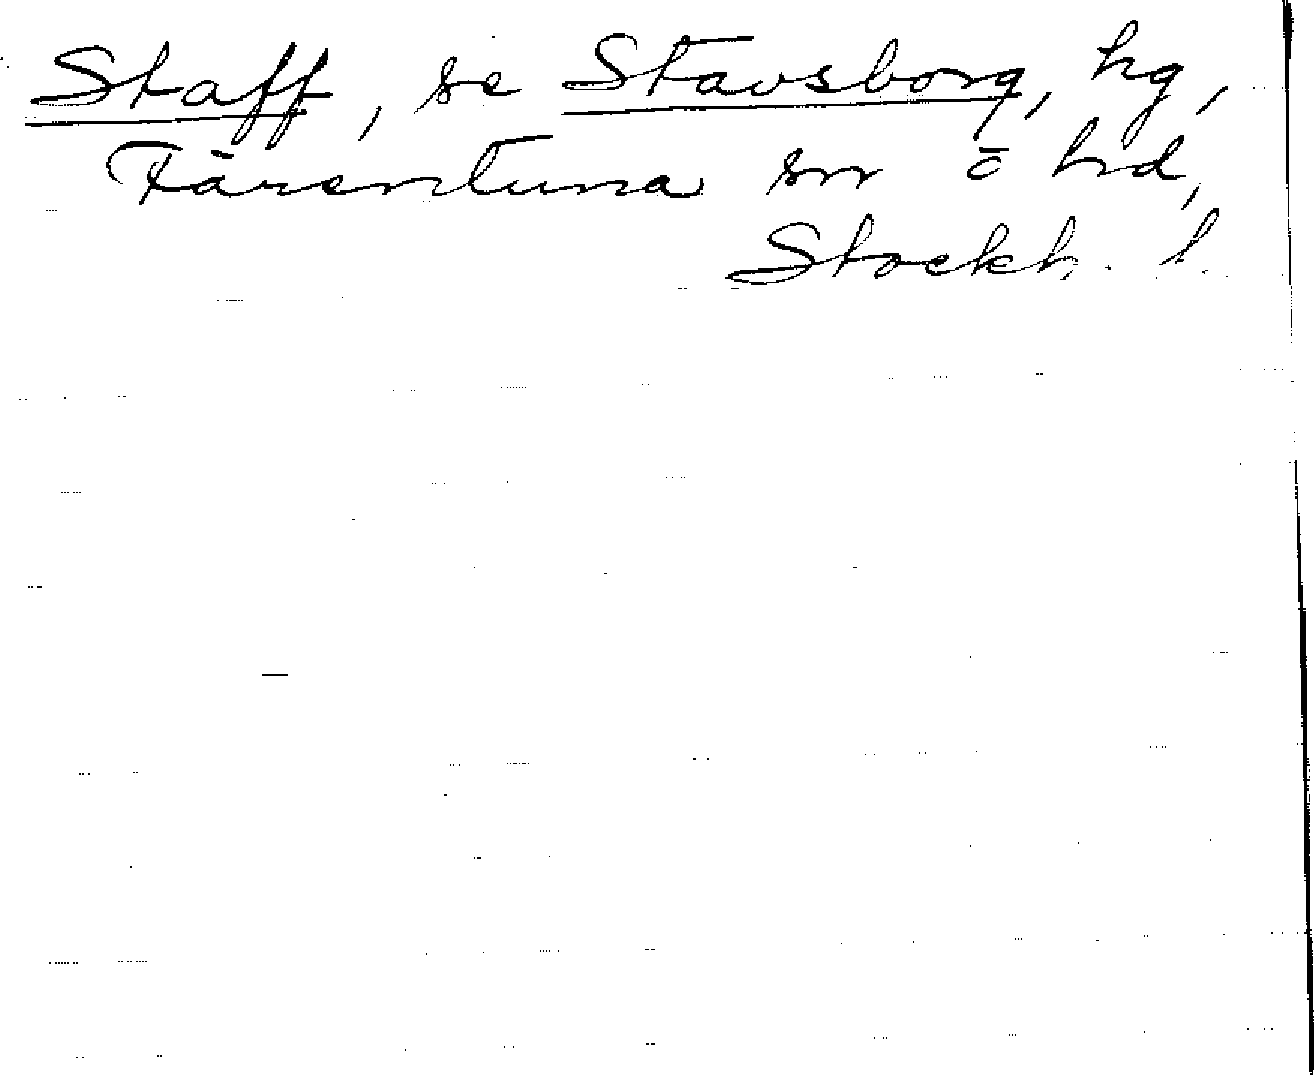 Staff, se Stavsborg, hg,
Färentuna sn o hd,
Stockh. l.